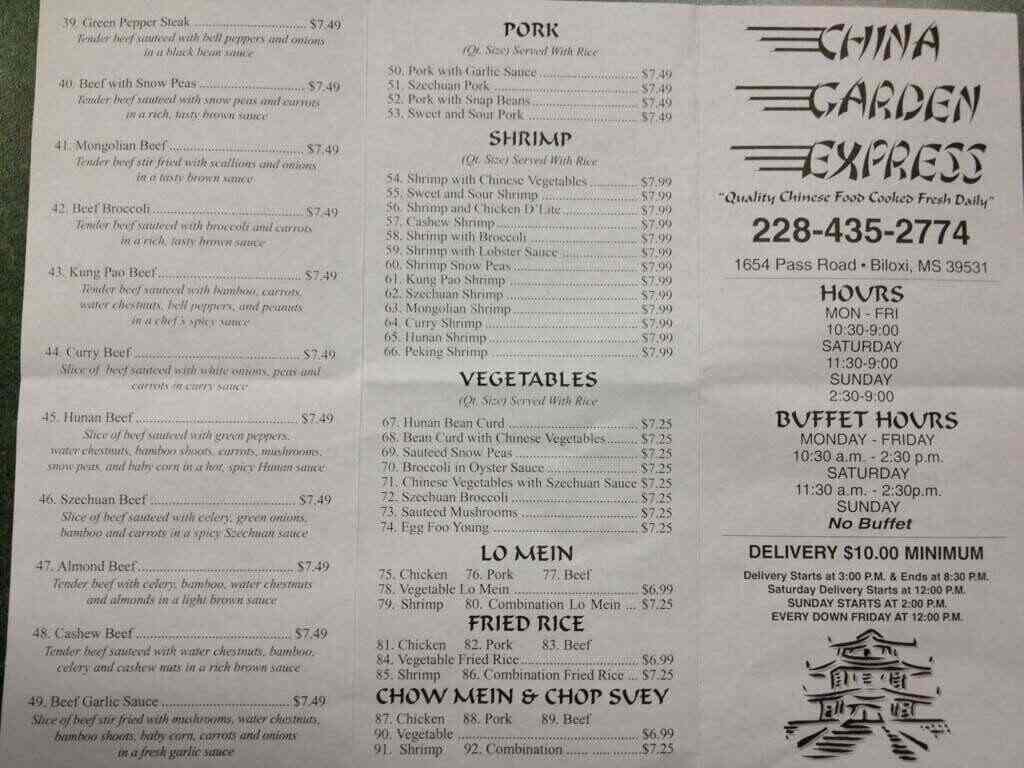 39. Green Pepper Steak ........ $7.49
Tender beef sauteed with bell peppers and onions
in a black bean sauce
40. Beef with Snow Peas ........ $7.49
Tender beef sauteed with snow peas and carrots
in a rich, tasty brown sauce
41. Mongolian Beef ........ $7.49
Tender beef stir fried with scallions and onions
in a tasty brown sauce
42. Beef Broccoli ........ $7.49
Tender beef sauteed with broccoli and carrots
in a rich, tasty brown sauce
43. Kung Pao Beef ........ $7.49
Tender beef sauteed with bamboo, carrots,
water chestnuts, bell peppers, and peanuts
in a chef's spicy sauce
44. Curry Beef ........ $7.49
Slice of beef sauteed with white onions, peas and
carrots in curry sauce
45. Hunan Beef ........ $7.49
Slice of beef sauteed with green peppers,
water chestnuts, bamboo shoots, carrots, mushrooms,
snow peas, and baby corn in a hot, spicy Hunan sauce
46. Szechuan Beef ........ $7.49
Slice of beef sauteed with celery, green onions,
bamboo and carrots in a spicy Szechuan sauce
47. Almond Beef ........ $7.49
Tender beef with celery, bamboo, water chestnuts
and almonds in a light brown sauce
48. Cashew Beef ........ $7.49
Tender beef sauteed with water chestnuts, bamboo,
celery and cashew nuts in a rich brown sauce
49. Beef Garlic Sauce ........ $7.49
Slice of beef stir fried with mushrooms, water chestnuts,
bamboo shoots, baby corn, carrots and onions
in a fresh garlic sauce
PORK
(Qt. Size) Served With Rice
50. Pork with Garlic Sauce ........ $7.49
51. Szechuan Pork ........ $7.49
52. Pork with Snap Beans ........ $7.49
53. Sweet and Sour Pork ........ $7.49
SHRIMP
(Qt. Size) Served With Rice
54. Shrimp with Chinese Vegetables ........ $7.99
55. Sweet and Sour Shrimp ........ $7.99
56. Shrimp and Chicken D'Lite ........ $7.99
57. Cashew Shrimp ........ $7.99
58. Shrimp with Broccoli ........ $7.99
59. Shrimp with Lobster Sauce ........ $7.99
60. Shrimp Snow Peas ........ $7.99
61. Kung Pao Shrimp ........ $7.99
62. Szechuan Shrimp ........ $7.99
63. Mongolian Shrimp ........ $7.99
64. Curry Shrimp ........ $7.99
65. Hunan Shrimp ........ $7.99
66. Peking Shrimp ........ $7.99
VEGETABLES
(Qt. Size) Served With Rice
67. Hunan Bean Curd ........ $7.25
68. Bean Curd with Chinese Vegetables ........ $7.25
69. Sauteed Snow Peas ........ $7.25
70. Broccoli in Oyster Sauce ........ $7.25
71. Chinese Vegetables with Szechuan Sauce $7.25
72. Szechuan Broccoli ........ $7.25
73. Sauteed Mushrooms ........ $7.25
74. Egg Foo Young ........ $7.25
LO MEIN
75. Chicken 76. Pork 77. Beef
78. Vegetable Lo Mein ........ $6.99
79. Shrimp 80. Combination Lo Mein ... $7.25
FRIED RICE
81. Chicken 82. Pork 83. Beef
84. Vegetable Fried Rice ........ $6.99
85. Shrimp 86. Combination Fried Rice ... $7.25
CHOW MEIN & CHOP SUEY
87. Chicken 88. Pork 89. Beef
90. Vegetable ........ $6.99
91. Shrimp 92. Combination ........ $7.25
CHINA
GARDEN
EXPRESS
"Quality Chinese Food Cooked Fresh Daily"
228-435-2774
1654 Pass Road • Biloxi, MS 39531
HOURS
MON - FRI
10:30-9:00
SATURDAY
11:30-9:00
SUNDAY
2:30-9:00
BUFFET HOURS
MONDAY - FRIDAY
10:30 a.m. - 2:30 p.m.
SATURDAY
11:30 a.m. - 2:30p.m.
SUNDAY
No Buffet
DELIVERY $10.00 MINIMUM
Delivery Starts at 3:00 P.M. & Ends at 8:30 P.M.
Saturday Delivery Starts at 12:00 P.M.
SUNDAY STARTS AT 2:00 P.M.
EVERY DOWN FRIDAY AT 12:00 P.M.